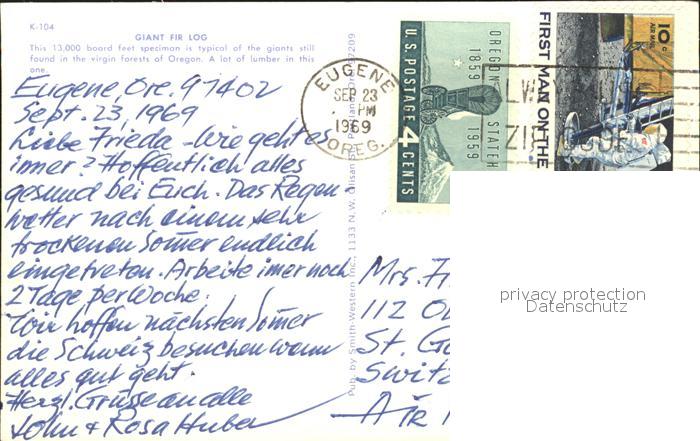 K-104
GIANT FIR LOG
This 13,000 board feet specimen is typical of the giants still
found in the virgin forests of Oregon. A lot of lumber in this
one.
Eugene, Ore. 97402
Sept. 23, 1969
Liebe Frieda - Wie geht es
imer? Hoffentlich alles
gesund bei Euch. Das Regen
wetter nach einem sehr
trockenen Somer endlich
eingetreten. Arbeite imer noch
2 Tage per Woche.
Wir hoffen nächsten Somer
die Schweiz besuchen wenn
alles gut geht.
Herzl. Grüsse an alle
John + Rosa Huber
Pub. by Smith-Western Inc., 1133 N.W. Glisan St.
97209
EUGENE
SEP 23
PM
1969
OREG.
U.S. POSTAGE 4 CENTS
OREGON STATEH
1859 1959
FIRST MAN ON THE
10c
AIR MAIL
ZIP CODE
Mrs. Fr
112
St. Ga
Switz
Air
privacy protection
Datenschutz